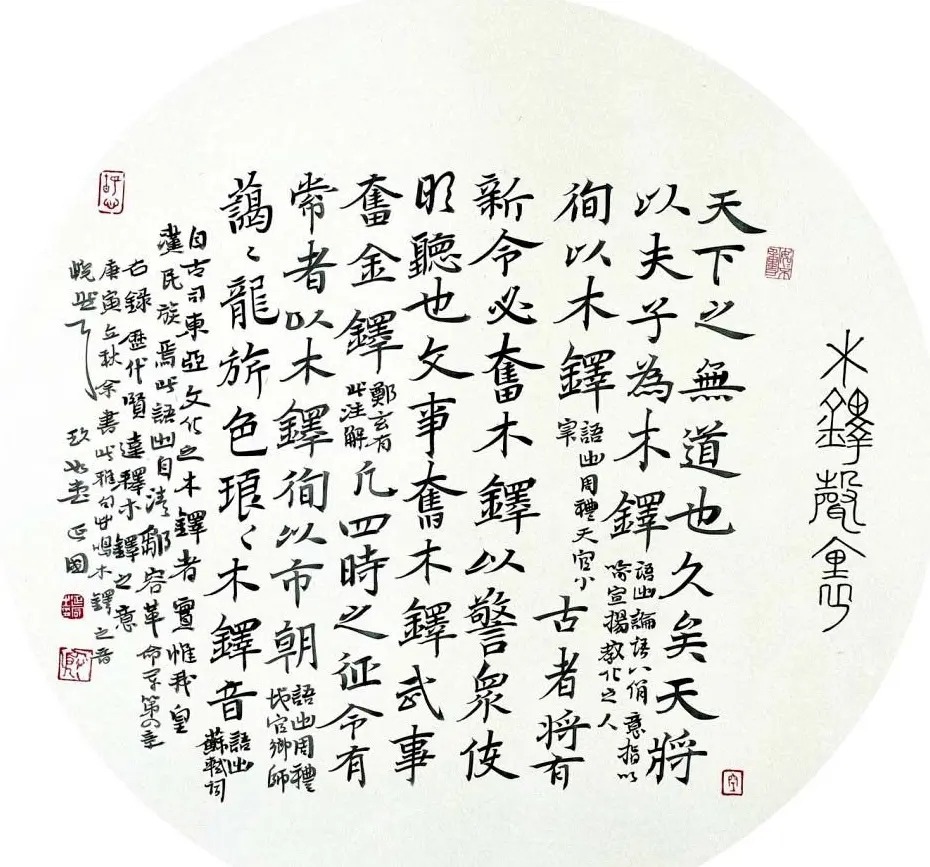 木鐸聲
天下之無道也久矣天將
以夫子為木鐸
語出論語八佾意指以
喻宣揚教化之人
徇以木鐸
語出周禮天官小
宰
古者將有
新令必奮木鐸以警眾使
明聽也文事奮木鐸武事
奮金鐸
鄭玄有
此注解
凡四時之征令有
常者以木鐸徇以市朝
語出周禮
地官鄉師
藹々龍旂色琅々木鐸音
語出
蘇軾詞
自古司東亞文化之木鐸者實惟我皇
漢民族焉此語出自清鄒容革命軍第四章
右錄歷代賢達釋木鐸之意
庚寅立秋余書此雅句 鳴木鐸之音